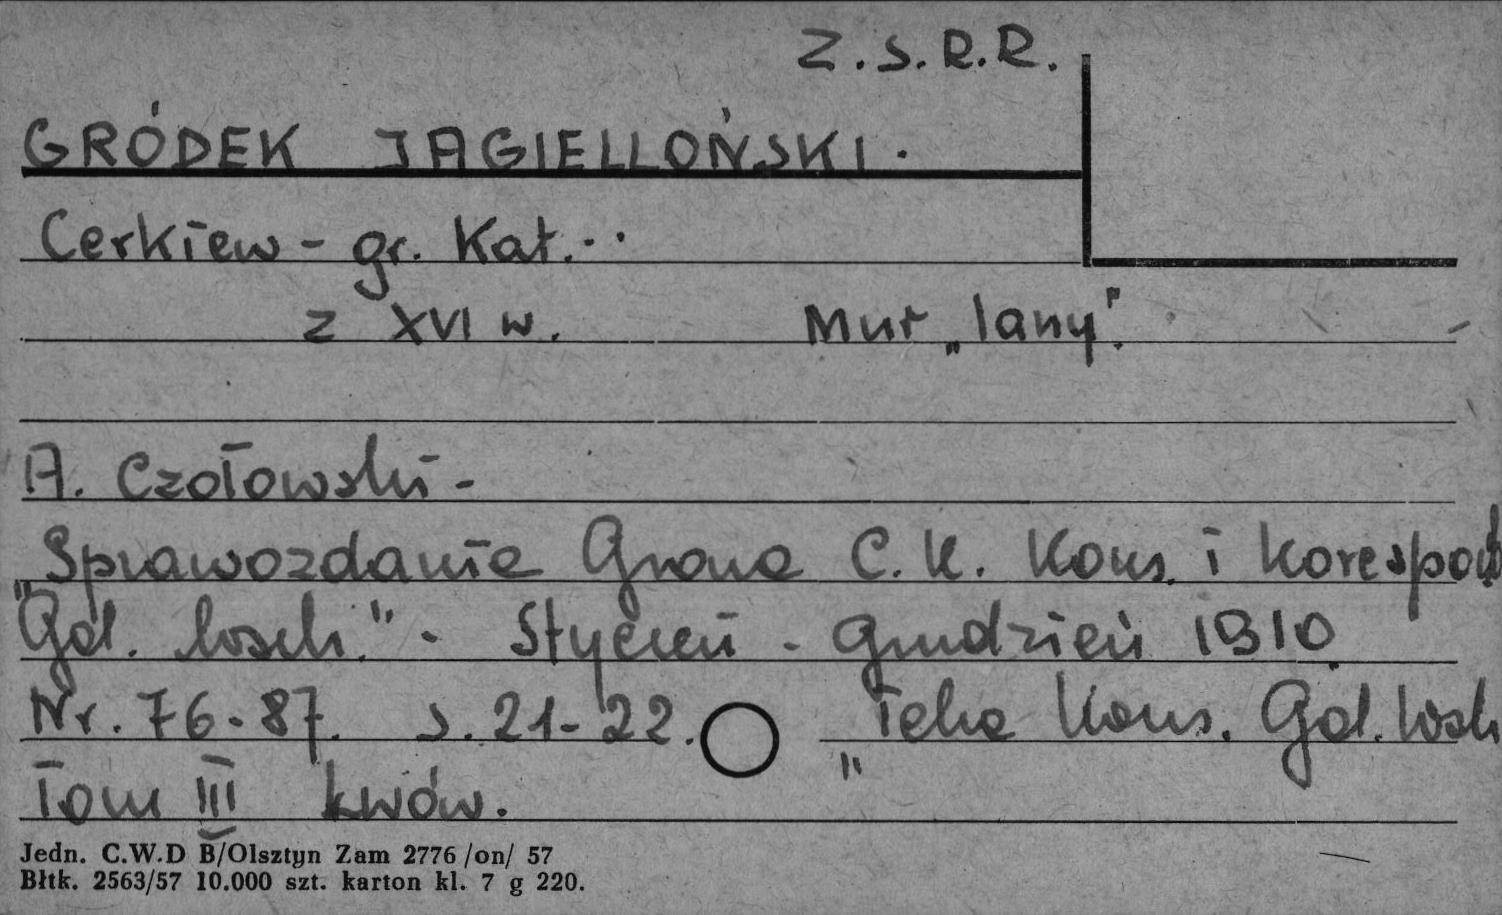 Z.S.R.R.
GRÓDEK JAGIELLOŃSKI.
Cerkiew - gr. Kat...
z XVI w. Mur „lany".
A. Czołowski -
„Sprawozdanie Grona C.K. Kons. i korespond
Gal. wsch." - Styczeń - grudzień 1910
Nr. 76-87. s. 21-22. „Teka Kons. Gal. wsch
Tom III Lwów.
Jedn. C.W.D B/Olsztyn Zam 2776 /on/ 57
Błtk. 2563/57 10.000 szt. karton kl. 7 g 220.